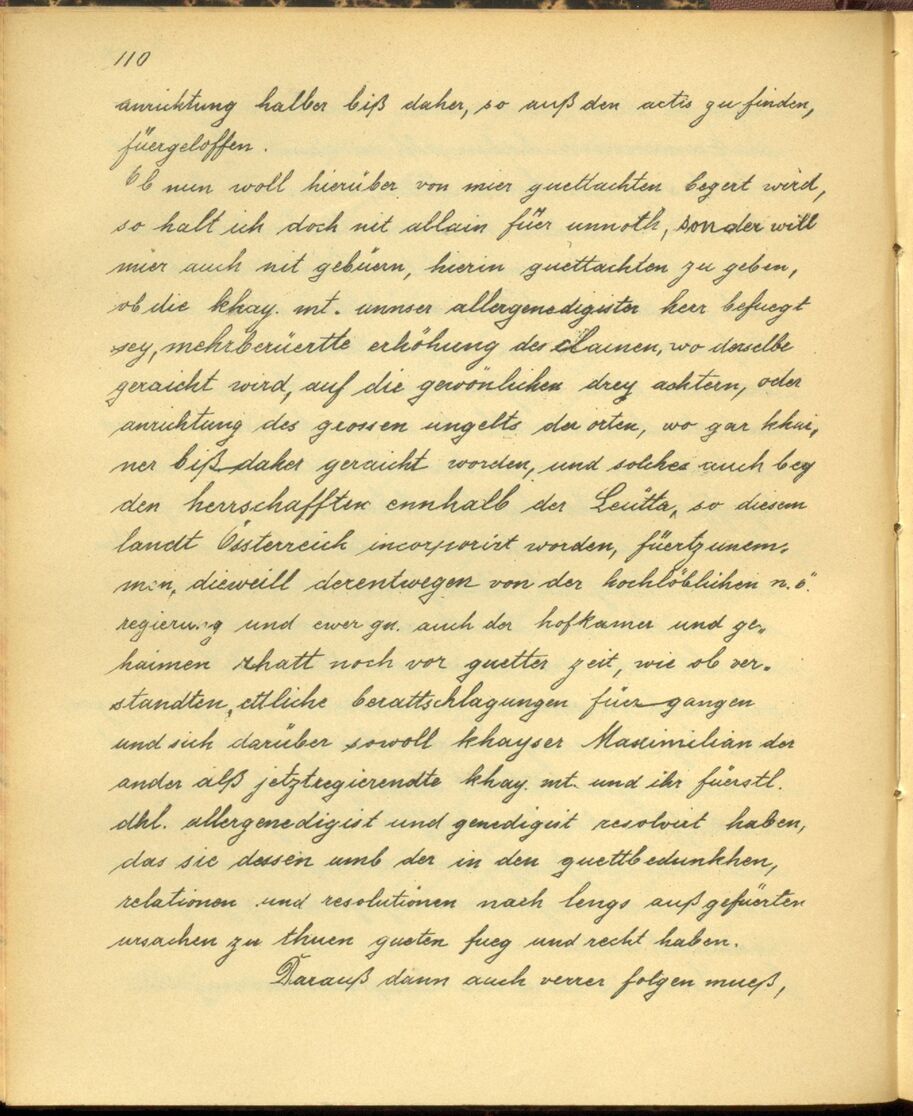 110
anrichtung halber biß daher, so auß den actis zu finden,
füergeloffen.
Ob nun woll hierüber von mier guettachten begert wird,
so halt ich doch nit allain für unnoth, sonder will
mier auch nit gebüern, hierin guettachten zu geben,
ob die khay. mt. unnser allergenedigister herr befuegt
sey, mehrberüertte erhöhung des clainen, wo derselbe
geraicht wird, auf die gewönlichen drey achtern, oder
anrichtung des grossen ungelts der orten, wo gar khai,
ner biß daher geraicht worden, und solches auch bey
den herrschafften ennhalb der Leütta, so diesem
landt Össterreich incorporirt worden, füertzunem,
men, dieweill derentwegen von der hochlöblichen n.ö.
regierung und ewer gn. auch der hofkamer und ge„
haimen rhatt noch vor guetter zeit, wie ob ver„
standten, ettliche berattschlagungen füergangen
und sich darüber sowoll khayser Maximilian der
ander alß jetztregierendte khay. mt. und ihr füerstl.
dhl. allergenedigist und genedigist resolvirt haben,
das sie dessen umb der in den guettbedunkhen,
relationen und resolutionen nach lengs außgefüerten
ursachen zu thuen gueten fueg und recht haben.
Darauß dann auch verrer folgen mueß,